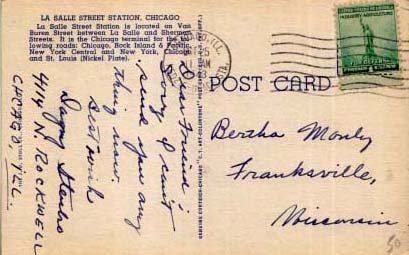 LA SALLE STREET STATION, CHICAGO
La Salle Street Station is located on Van
Buren Street between La Salle and Sherman
Streets. It is the Chicago terminal for the fol-
lowing roads: Chicago, Rock Island & Pacific,
New York Central and New York, Chicago
and St. Louis (Nickel Plate).
Dear Friend;
Sorry I can't
send you any
thing now.
Best wish
4114 N. ROCKWELL
CHICAGO, ILL.
GENUINE CURTEICH-CHICAGO "C.T. ART-COLORTONE" POST CARD
POST CARD
Bertha Monly
Franksville,
Wisconsin
INDUSTRY AGRICULTURE
FOR DEFENSE
50